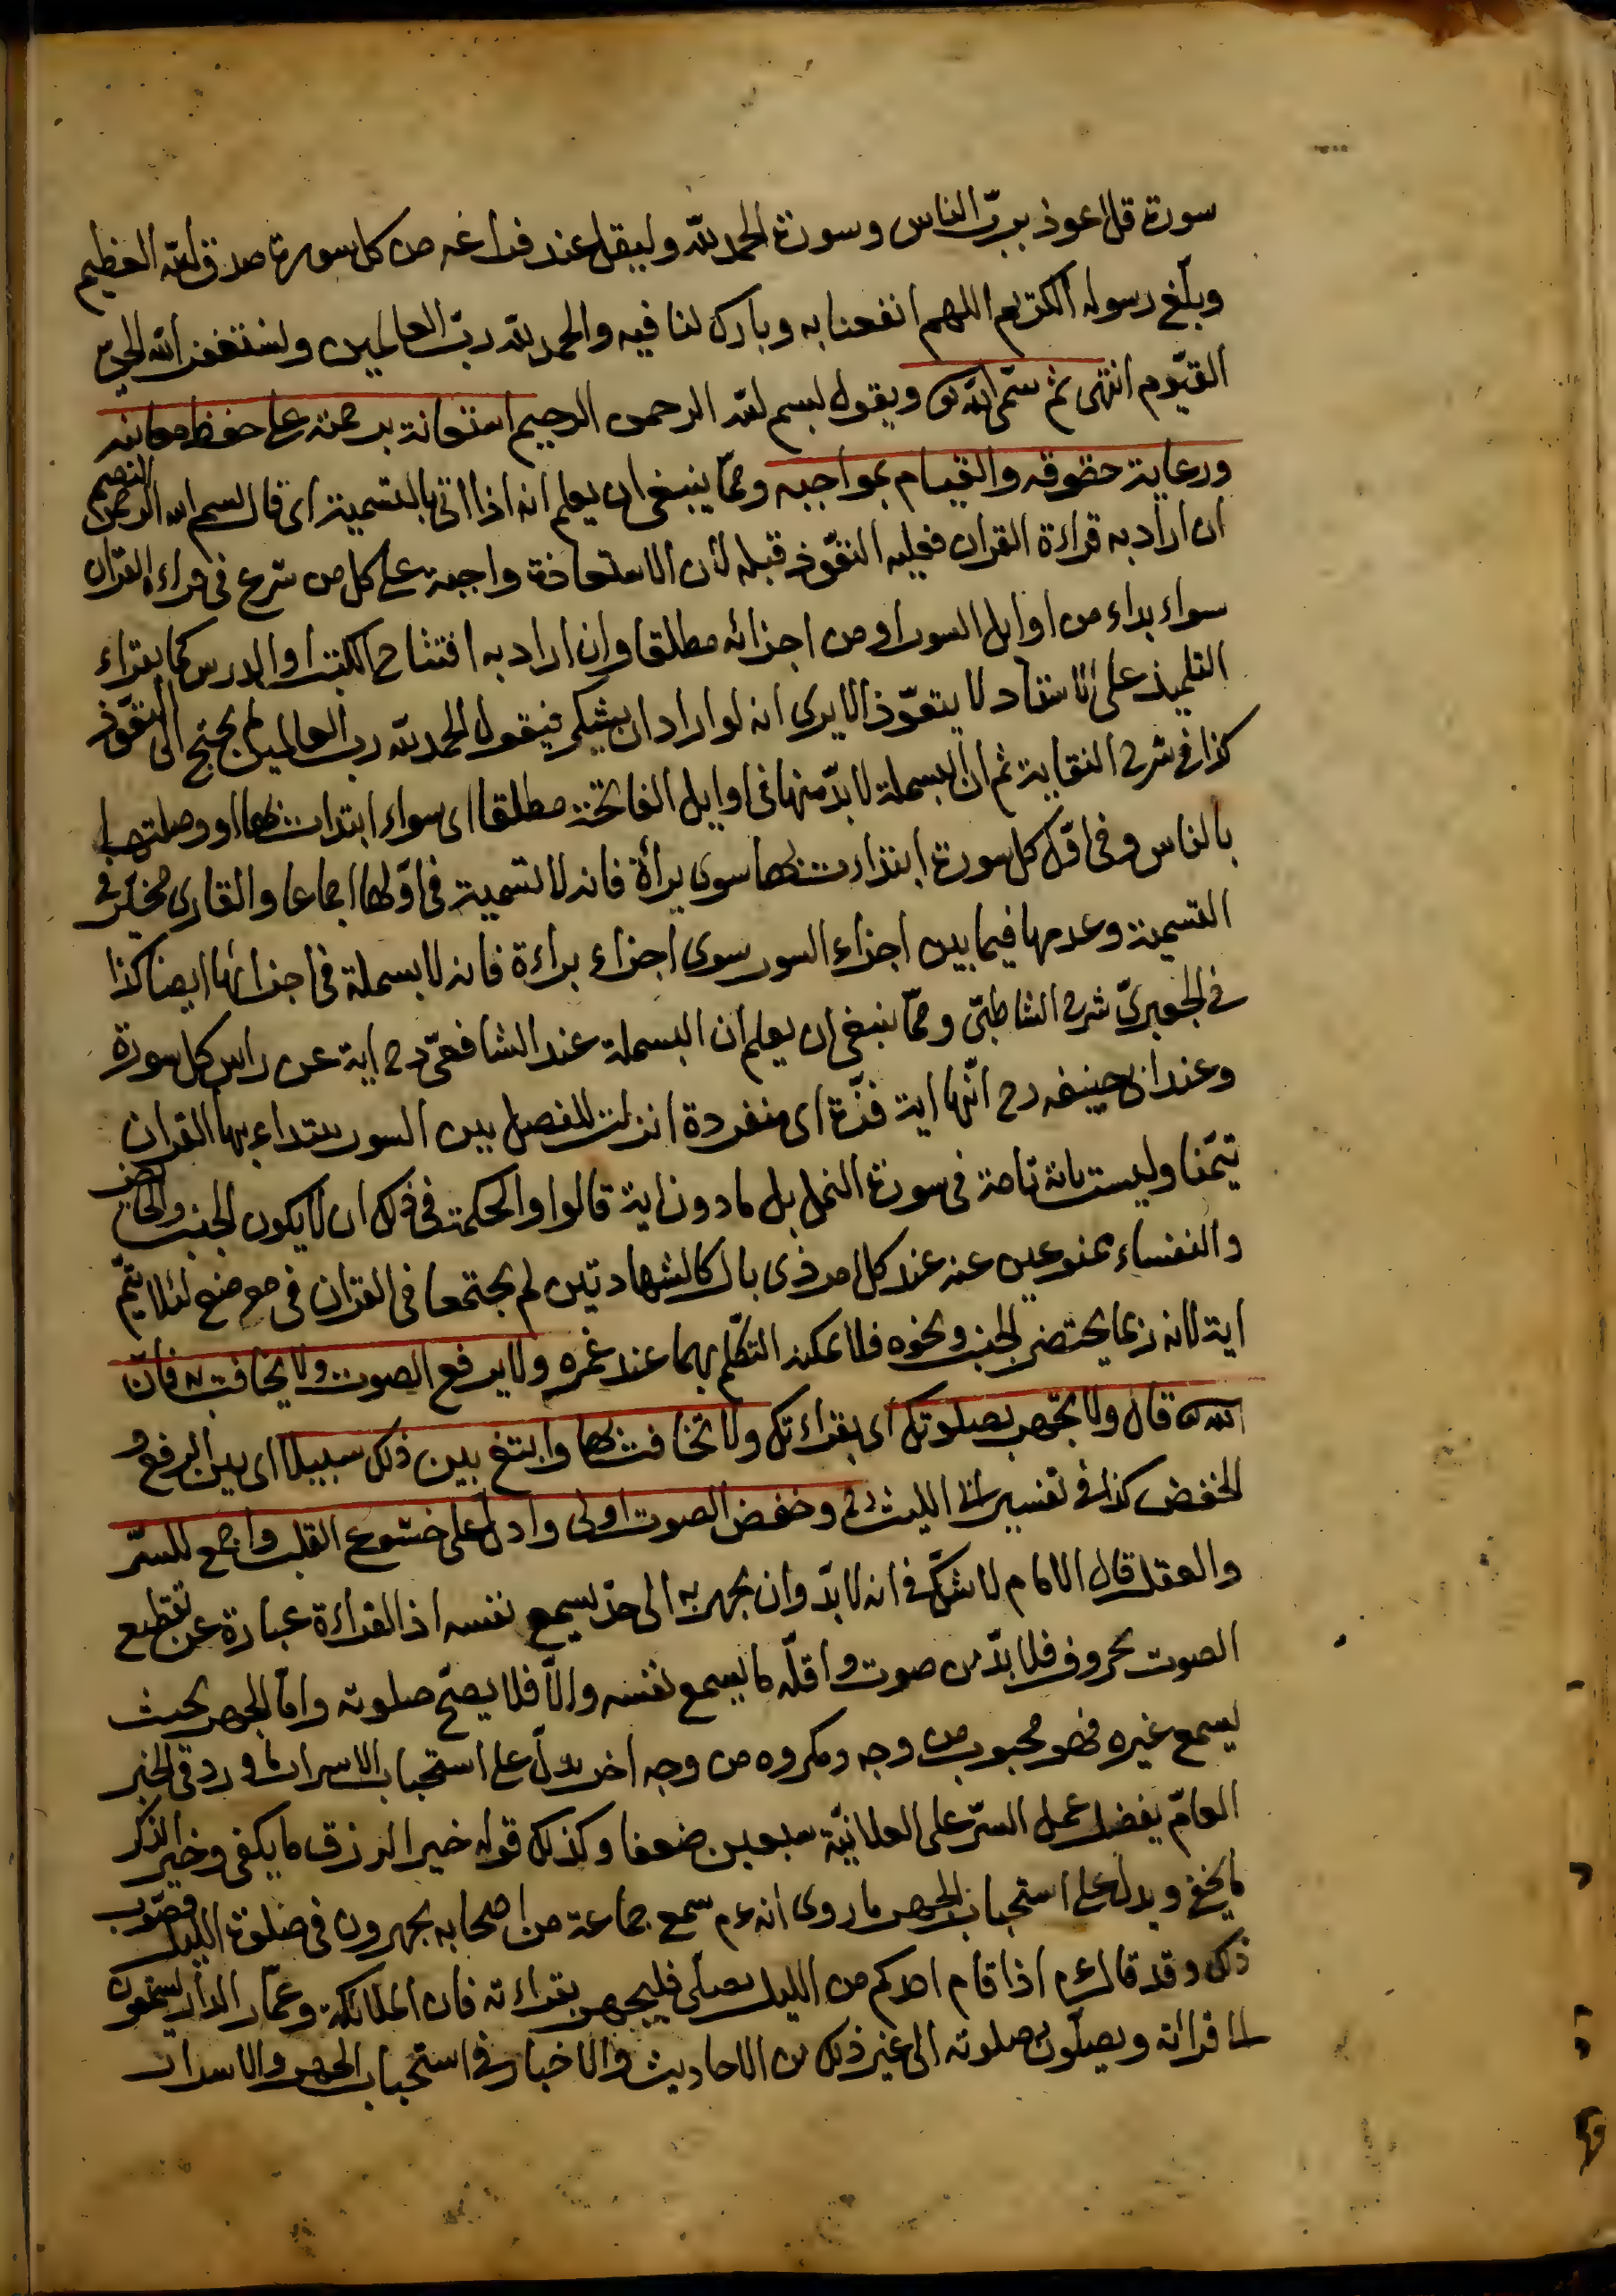 سورة قل اعوذ بربّ الناس وسورة الحمد لله وليقل عند فراغه من كل سورة صدق الله العظيم
وبلّغ رسوله الكريم اللهم انفعنا به وبارك لنا فيه والحمد لله ربّ العالمين ونستغفر الله الحيّ
القيّوم انتهى ثم سمّى الله تع ويقول بسم الله الرحمن الرحيم استعانة برحمته على حفظ معانيه
ورعاية حقوقه والقيام بمواجبه وممّا ينبغى ان يعلم انه اذا اتى بالتسمية اى قال بسم الله الرحمن الرحيم
ان اراد به قراءة القران فعليه التعّوذ قبله لأن الاستعاذة واجبة على كل من شرع فى قراءة القران
سواء بداء من اوايل السور او من اجزائه مطلقا وان اراد به افتتاح الكتب او الدرس كما يقراء
التلميذ على الاستاد لا يتعوّذ الا يرى انه لو اراد ان يشكر فيقول الحمد لله رب العالمين لم يحتج الى التعّوذ
كذا فى شرح النقاية ثم ان البسملة لا بدّ منها فى اوايل الفاتحة مطلقا اى سواء ابتدات بها او وصلتها
بالناس وفى اوّل كل سورة ابتداءت بها سوى برأة فانه لا تسمية فى اوّلها اجماعا والقارى مخيّر فى
التسمية وعدمها فيما بين اجزاء السور سوى اجزاء براءة فانه لا بسملة فى اجزائها ايضا كذا
فى الجعبرىّ شرح الشاطبىّ وممّا ينبغى ان يعلم ان البسملة عند الشافعىّ رح اية عن راس كل سورة
وعند ابى حنيفه رح انّها اية فذّة اى منفردة انزلت للفصل بين السور يبتداء بها القران
تيمّنا وليست باية تامة فى سورة النمل بل ما دون اية قالوا والحكمة فى ذلك ان لا يكون الجنب والحائض
والنفساء ممنوعين عنه عند كل امر ذى بال كالشهادتين لم يجتمعا فى القران فى موضع لئلا يتمّ
اية لانه ربما يحتضر الجنب ونحوه فلا يمكنه التكلّم بهما عند غمره ولا يرفع الصوت ولا يخافت به فانّ
الله تع قال ولا تجهر بصلوتك اى بقراءتك ولا تخافت بها وابتغ بين ذلك سبيلا اى بين الرفع و
الخفض كذا فى تفسير ابى الليث رح وخفض الصوت اولى وادلّ على خشوع القلب واجمع للسّر
والعقل قال الامام لا شكّ فى انه لا بدّ وان يجهر به الى حدّ يسمع نفسه اذ القراءة عبارة عن تقطيع
الصوت بحروف فلا بدّ من صوت واقلّه ما يسمع نفسه والّا فلا يصحّ صلوته وامّا الجهر بحيث
يسمع غيره فهو محبوب من وجه ومكروه من وجه اخر يدلّ على استحباب الاسرار ما ورد فى الخبر
العامّ يفضل عمل السّر على العلانيّة سبعين ضعفا وكذلك قوله خير الرزق ما يكفى وخير الذكر
ما يخفى ويدل على استحباب الجهر ما روى انه عم سمع جماعة من اصحابه يجهرون فى صلوة الليل فصّوب
ذلك وقد قال عم اذا قام احدكم من الليل يصلّى فليجهر بقراءته فان الملائكة وعمّار الدار يستمعون
الى قراءته ويصلّون بصلوته الى غير ذلك من الاحاديث والاخبار فى استحباب الجهر والاسرار